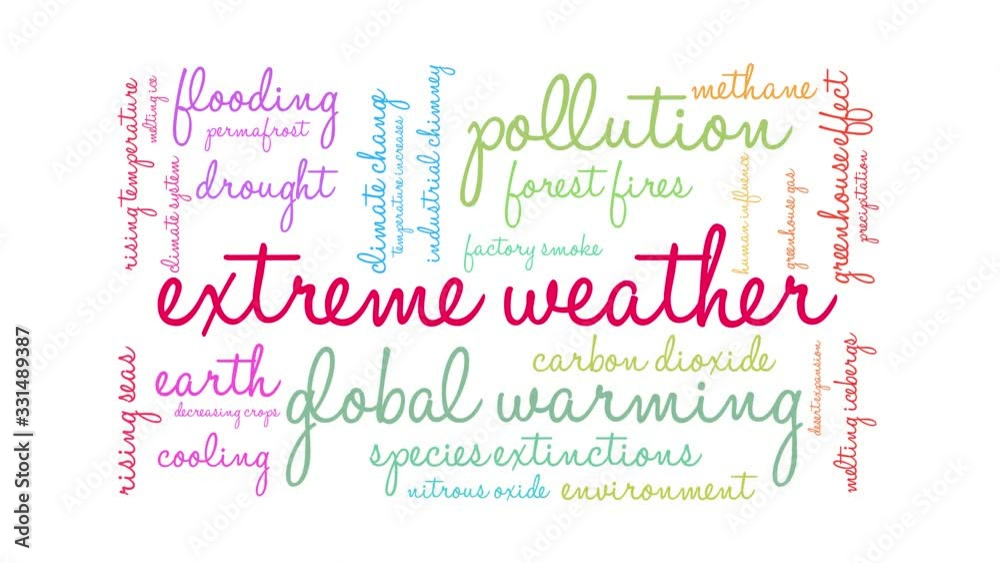 rising temperature
melting ice
flooding
permafrost
climate system
drought
climate chang
temperature increases
industrial chimney
pollution
methane
forest fires
factory smoke
human influence
greenhouse gas
greenhouse effect
precipitation
extreme weather
rising seas
earth
decreasing crops
cooling
global warming
carbon dioxide
species extinctions
nitrous oxide
environment
desert expansion
melting icebergs
Adobe Stock | #331489387
Adobe Stock